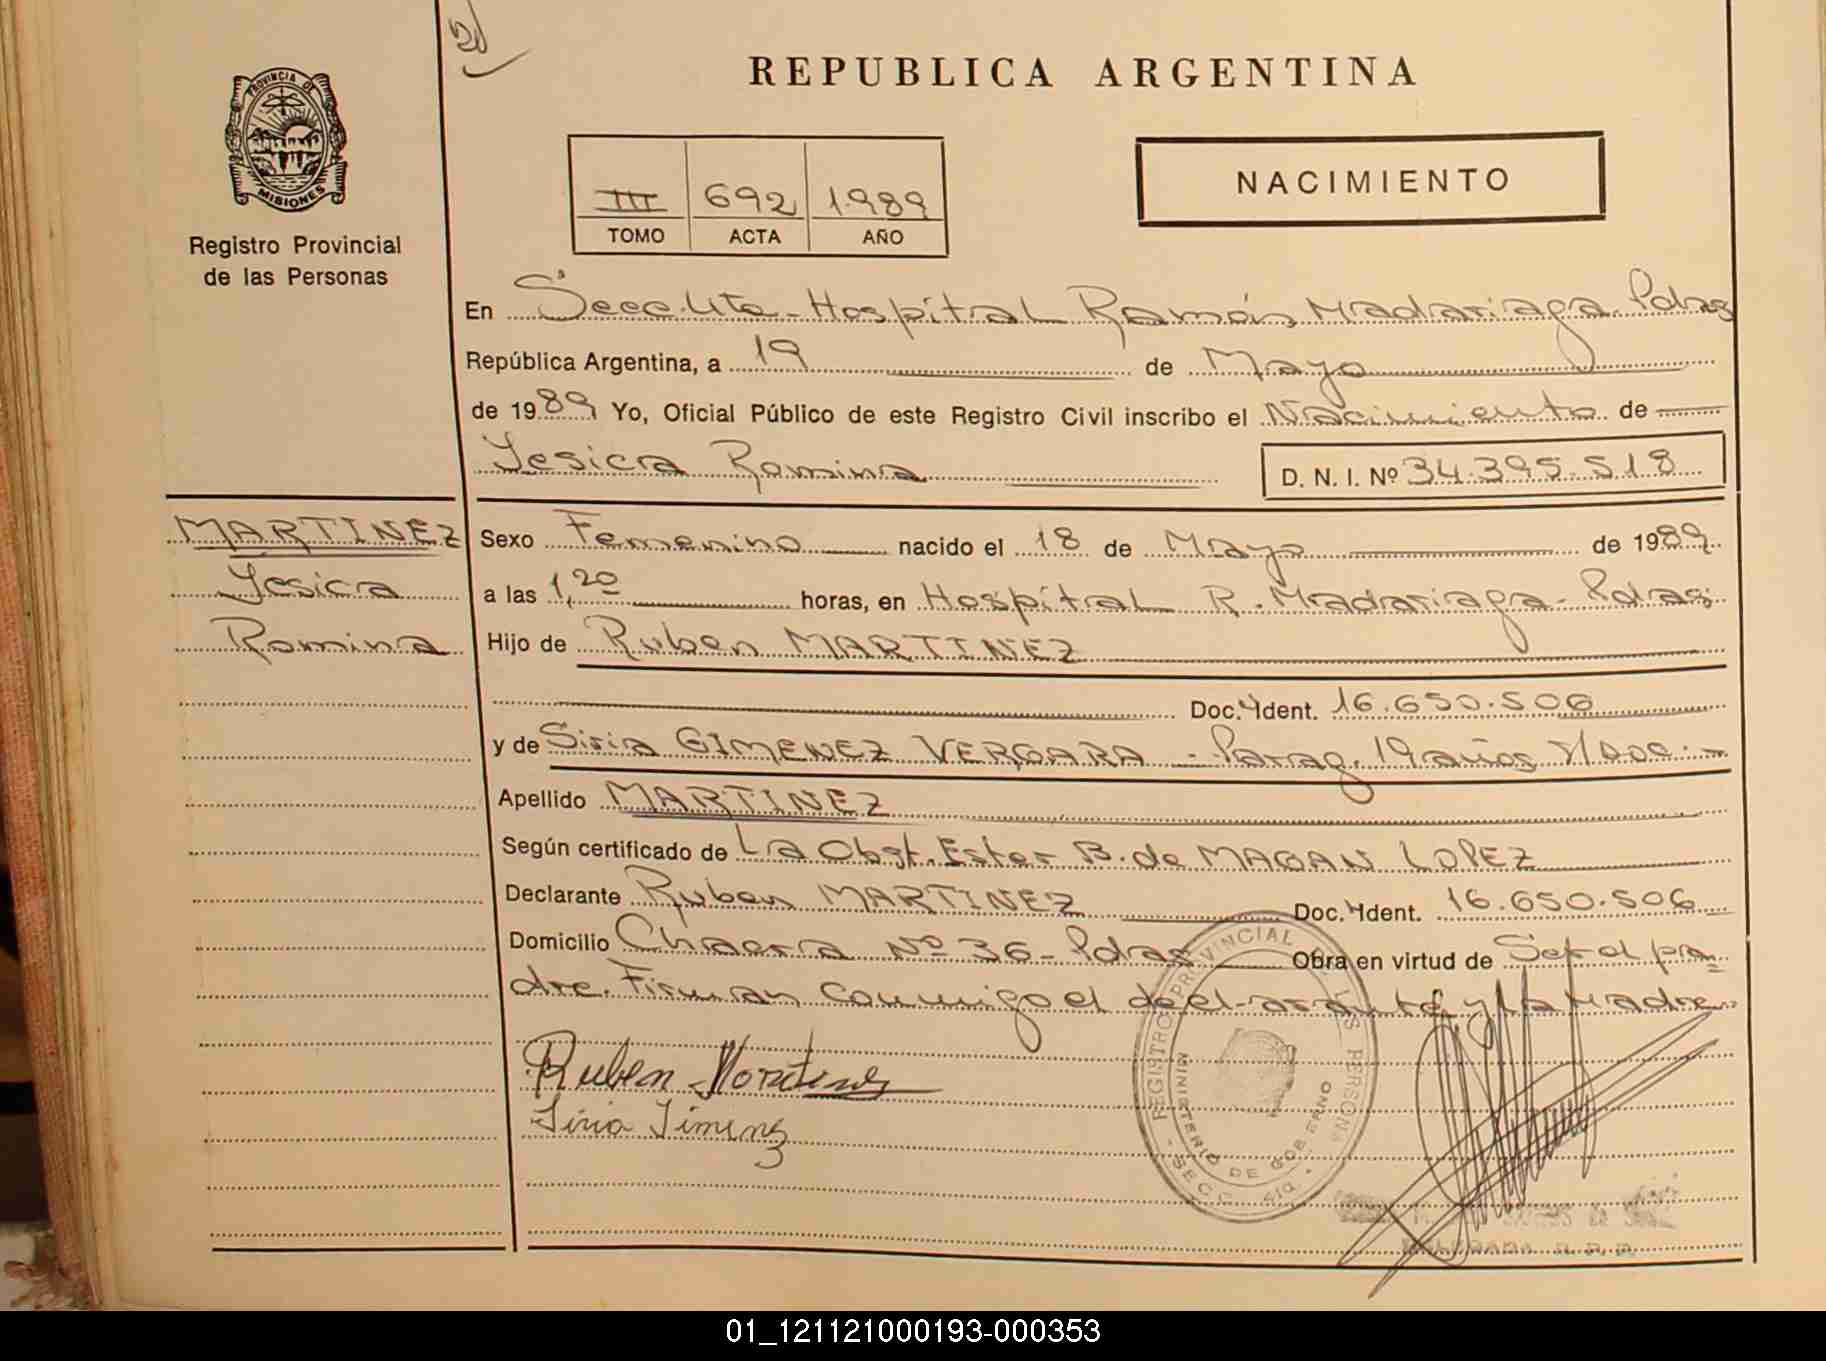 REPUBLICA ARGENTINA
PROVINCIA DE MISIONES
Registro Provincial
de las Personas
III 692 1989
TOMO ACTA AÑO
NACIMIENTO
En Secc. Hospital Ramón Madariaga Pdas
República Argentina, a 19 de Mayo
de 1989 Yo, Oficial Público de este Registro Civil inscribo el Nacimiento de
Yesica Romina D. N. I. Nº 34.395.518
MARTINEZ
Yesica
Romina
Sexo Femenino nacido el 18 de Mayo de 1989
a las 1,20 horas, en Hospital R. Madariaga - Pdas
Hijo de Ruben MARTINEZ
Doc. Ident. 16.650.506
y de Siria GIMENEZ VERGARA - Parag. 19 años
Apellido MARTINEZ
Según certificado de La Obst. Ester B. de MAGAN LOPEZ
Declarante Ruben MARTINEZ Doc. Ident. 16.650.506
Domicilio Chacra Nº 36 - Pdas Obra en virtud de Ser el pa
dre. Firman conmigo el declarante y la Madre
Ruben Martinez
Siria Jimenz
REGISTRO PROVINCIAL DE LAS PERSONAS
MINISTERIO DE GOBIERNO
SECC.
DELEGADA R. P. P.
01_121121000193-000353